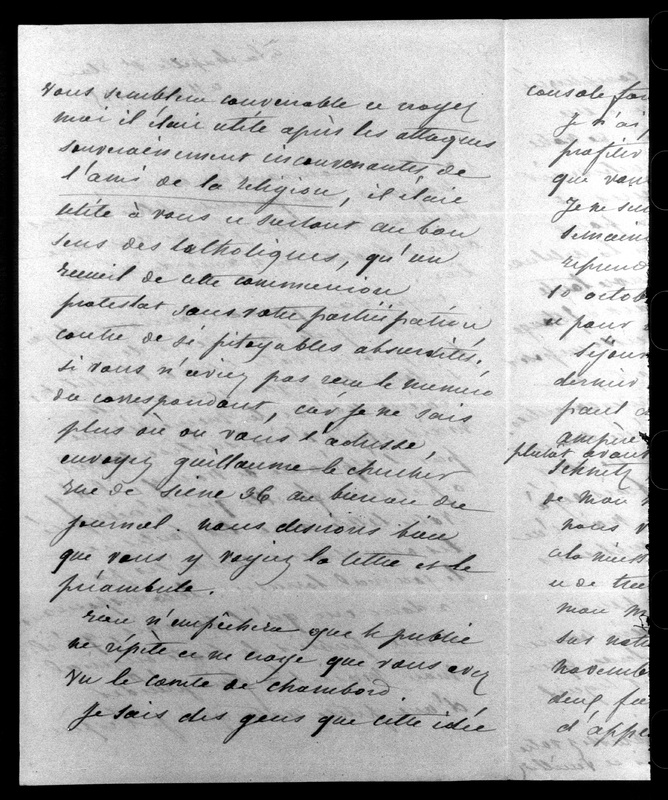 vous semblera convenable ce croyez
moi il étair utile après les attaques
souverainement inconvenantes, de
l'ami de la religion, il étair
utile à vous ce surtout au bon
sens des catholiques, qu'un
recueil de cette communion
protestat sans votre participation
contre de si pitoyables absurdités.
si vous n'aviez pas reçu le numéro
du correspondant, car je ne sais
plus où on vous l'adresse,
envoyez guillaume le chercher
rue de Seine 26 au bureau du
journal. nous desirons bien
que vous y voyiez la lettre et le
préambule.
rien n'empêchera que le public
ne répète ce ne croye que vous avez
vu le comte de chambord.
Je sais des gens que cette idée
console
Je n'ai
profiter
que vous
Je ne
semaine
reprend
10 octob
ce pour
séjour
dernier
ampère
plutot avant
Schnetz
de mon
nous
a la
mon
sur notre
novembre
deux
d'appe